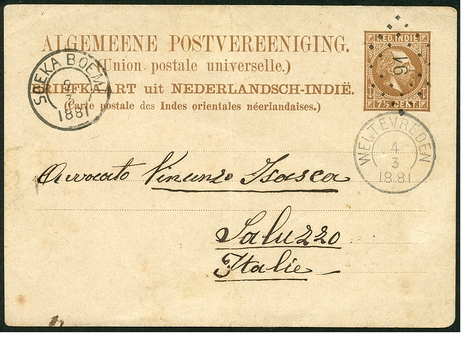 ALGEMEENE POSTVEREENIGING.
(Union postale universelle.)
BRIEFKAART uit NEDERLANDSCH-INDIË.
(Carte postale des Indes orientales néerlandaises.)
NED. INDIE
7½ CENT.
SOEKA BOEMI
3
1881
WELTEVREDEN
4
3
1881
Avvocato Vincenzo Isasca
Saluzzo
Italie